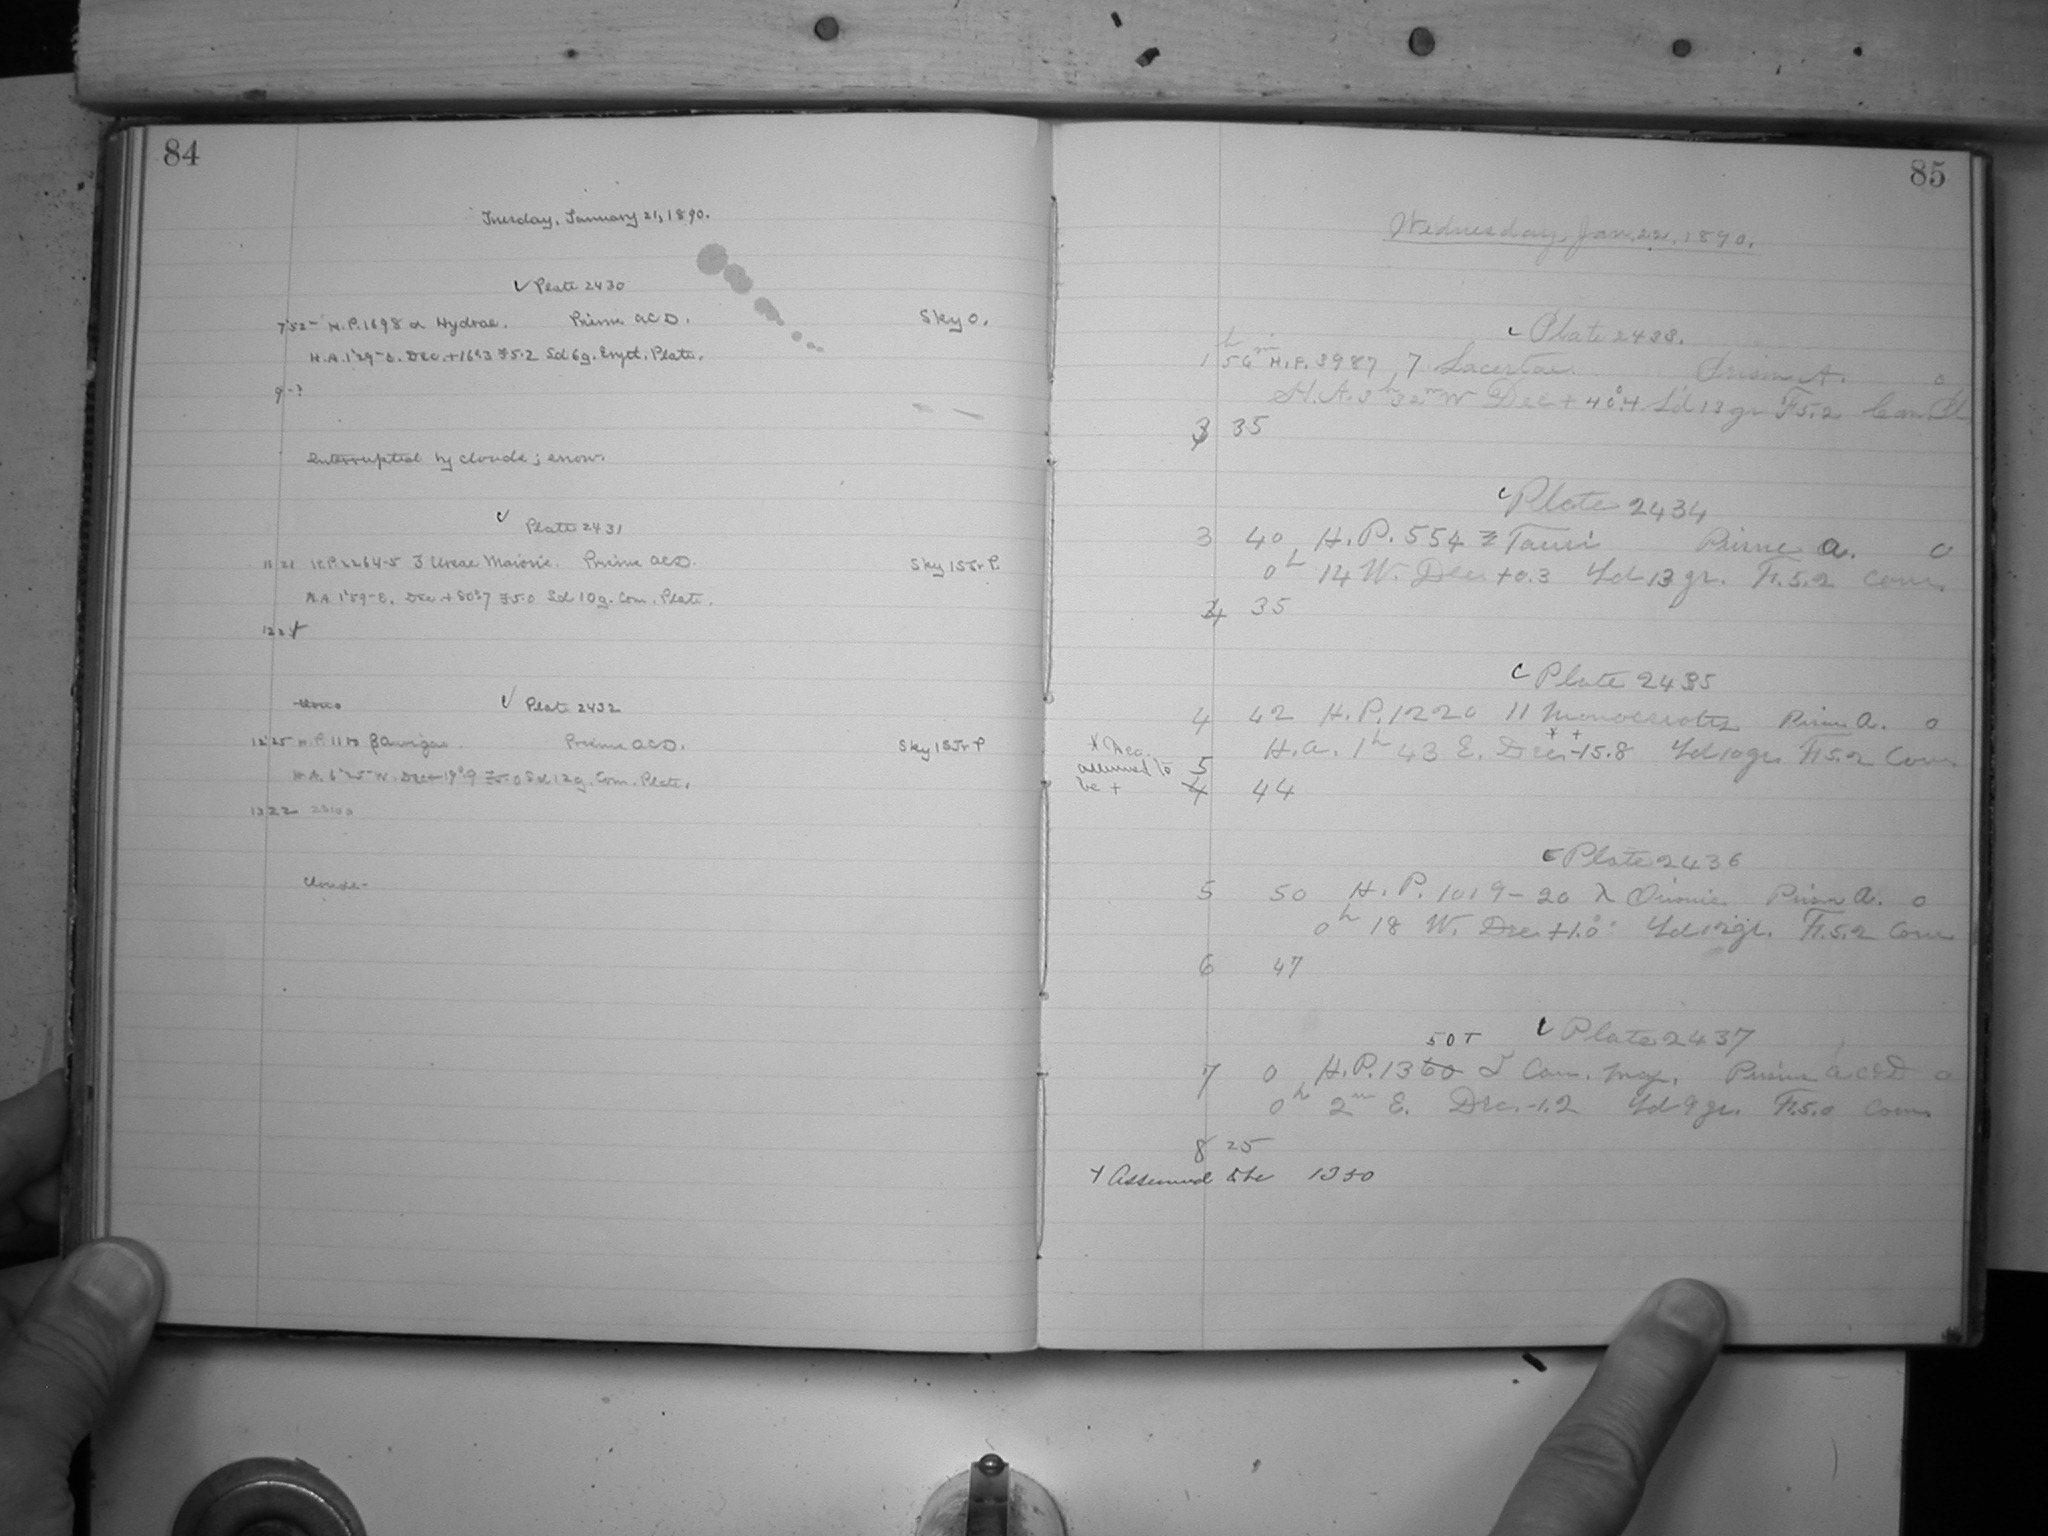 84
Tuesday, January 21, 1890.
✓ Plate 2430
7 52 H.P. 1698 α Hydrae. Prisms a C D. Sky 0.
H.A. 1 29 E. Dec. + 16.3 F 5.2 Sd 6 g. Eryth. Plate.
9 - ?
Interrupted by clouds; snow.
✓ Plate 2431
11 21 H.P. 2264-5 ζ Ursae Majoris. Prisms a C D. Sky 1 S Tr P
H.A. 1 59 E. Dec. + 80.7 F 5.0 Sd 10 g. Com. Plate.
12 21
✓ Plate 2432
12 25 H.P. 1100 β Aurigae. Prisms a C D. Sky 1 S Tr P
H.A. 25 W. Dec + 19.9 F 5.0 Sd 12 g. Com. Plate.
13 22
Clouds-
85
Wednesday, Jan. 22, 1890.
✓ Plate 2433.
1h 56m H.P. 3987 7 Lacertae. Prism A. 0
H.A. 3h 32m W Dec + 40°.4 Sd 13 gr F 5.2 Com Pl
3 35
✓ Plate 2434
3 40 H.P. 554 Tauri Prism a. 0
0h 14 W. Dec. +0.3 Sd 13 gr. F. 5.2 Com.
4 35
✓ Plate 2435
4 42 H.P. 1220 11 Monocerotis Prism a. 0
H.A. 1h 43 E. Dec. * + -15.8 Sd 10 gr. F 5.2 Com.
* Dec. assumed to be +
5
4 44
✓ Plate 2436
5 50 H.P. 1019-20 λ Orionis Prism a. 0
0h 18 W. Dec. +1.0° Sd 12 gr. F. 5.2 Com
6 47
✓ Plate 2437
50 T
7 0 H.P. 1360 Can. Maj. Prisms a C D 0
0h 2m E. Dec. -1.2 Sd 9 gr. F. 5.0 Com.
8 25
+ Assumed to be 1350